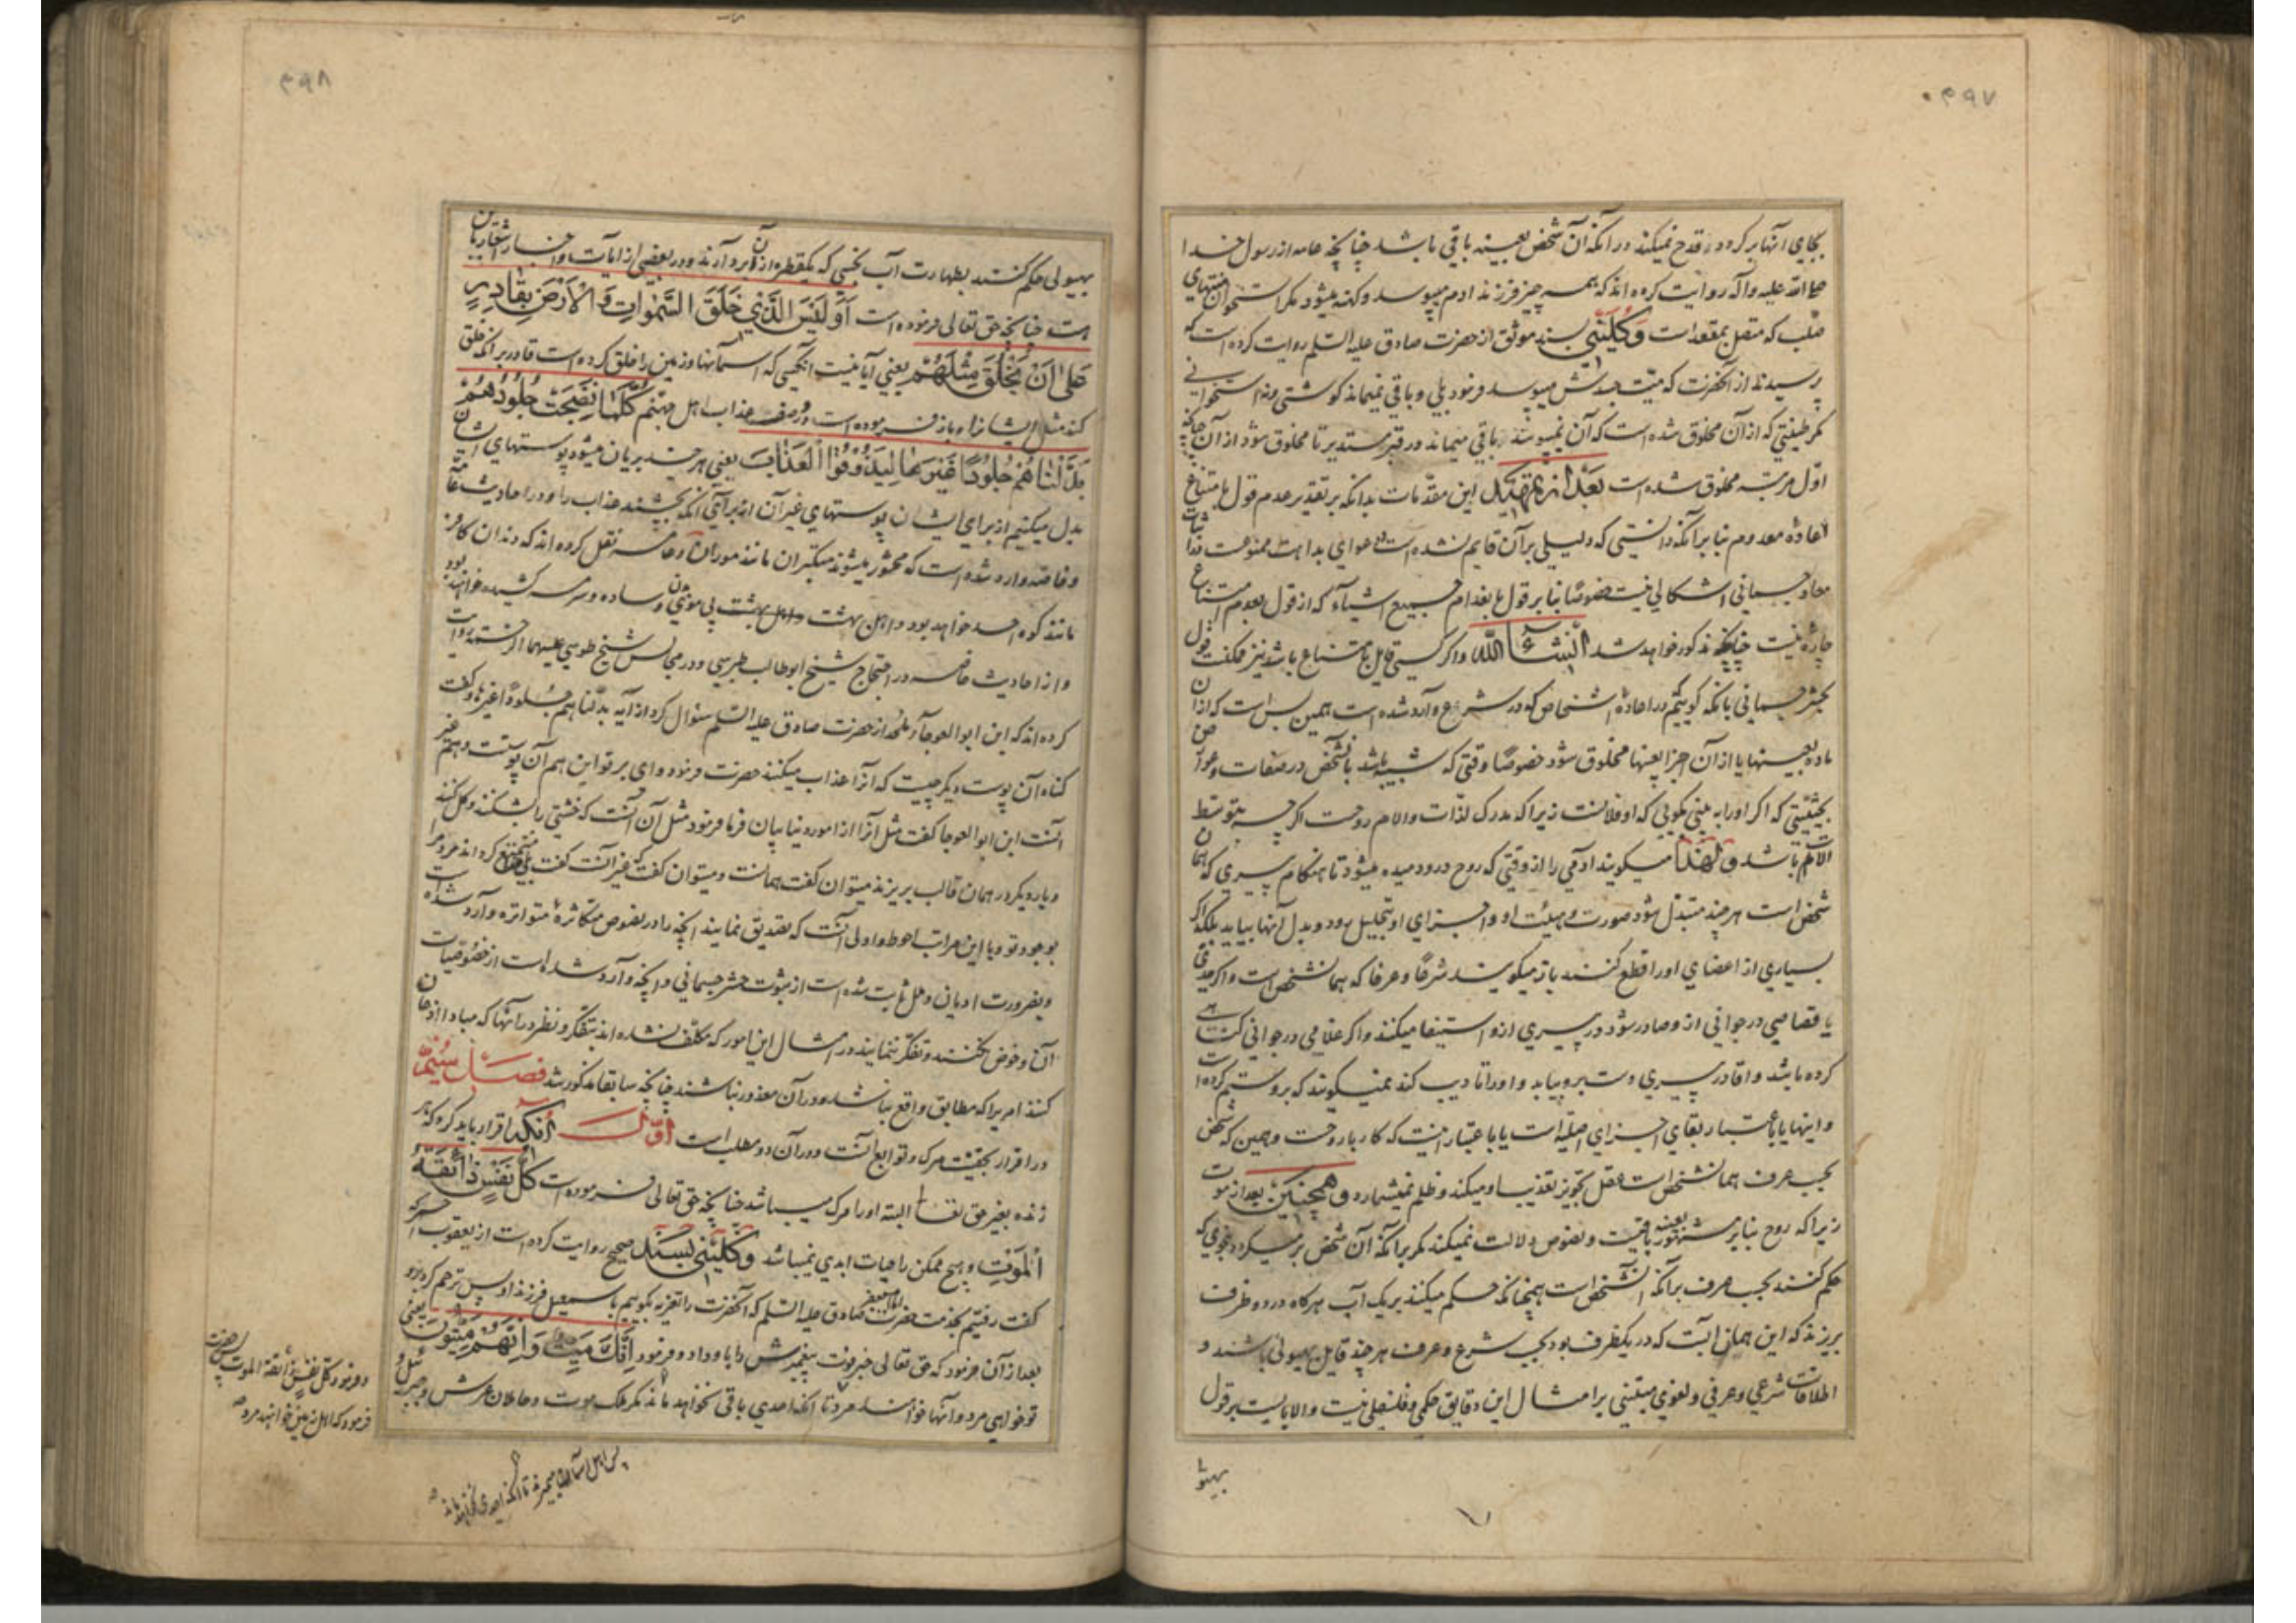 ۴۹۷
بجای آنها بر کردد قدح نمیکند در آنکه آن شخص بعینه باقی باشد چنانچه عامه از رسول خدا
صلی الله علیه وآله روایت کرده اند که همه چیز فرزند ادم میپوسد و کهنه میشود مکر استخوان منتهای
صلب که متصل بمقعد است وکلینی بسند موثق از حضرت صادق علیه السلم روایت کرده است که
پرسیدند از آنحضرت که میت جسدش میپوسد فرمود بلی و باقی نمیماند کوشتی ونه استخوانی
مکر طینتی که از آن مخلوق شده است که آن نمیپوسد باقی میماند در قبر مستدیر تا مخلوق شود از آن چنانچه
اول مرتبه مخلوق شده است بعد از تمهید این مقدمات بدانکه بر تقدیر عدم قول بامتناع
اعادۀ معدوم بنا بر آنکه دانستی که دلیلی بر آن قایم نشده است و دعوای بداهت ممنوعست در اثبات
معاد جسمانی اشکالی نیست خصوصا بنا بر قول بانعدام جمیع اشیاء که از قول بعدم امتناع
چاره نیست چنانچه مذکور خواهد شد انشاء الله واکر کسی قایل بامتناع باشد نیز ممکنست قول
بحشر جسمانی بانکه کوییم در اعادۀ اشخاص که در شرع وارد شده است همین بس است که از آن
ماده بعینها یا از آن اجزا بعینها مخلوق شود خصوصا وقتی که شبیه باشد بآنشخص در صفات وعوارض
بحیثیتی که اکر او را به بینی بکویی که او فلانست زیرا که مدرک لذات والام روحست اکر چه بتوسط
الات باشد ولهذا میکویند ادمی را از وقتی که روح در او دمیده میشود تا هنکام پیری که همان
شخص است هر چند متبدل شود صورت و هیئت او و اجزای او بتحلیل رود و بدل آنها بیاید بلکه اکر
بسیاری از اعضای او را قطع کنند باز میکویند شرعا وعرفا که همانشخص است واکر حدی
یا قصاصی در جوانی از و صادر شود در پیری ازو استیفا میکنند واکر غلامی در جوانی کناهی
کرده باشد و اقا در پیری دست برو بیابد و او را تادیب کند نمیکویند که برو ستم کرده است
و اینها یا باعتبار بقای اجزای اصلیه است یا باعتبار اینست که کار با روحست و همین که شخص
بحسب عرف همانشخص است عقل تجویز تعذیب او میکند و ظلم نمیشمارد وهمچنین بعد از موت
زیرا که روح بنا بر مشهور بعینه باقیست و نصوص دلالت نمیکند مکر بر آنکه آن شخص بر میکردد بنحوی که
حکم کنند بحسب عرف بر آنکه آنشخص است همچنانکه حکم میکنند بر یک آب هرکاه در دو ظرف
بریزند که این همان آبست که در یکظرف بود بحسب شرع و عرف هر چند قایل بهیولی باشند و
اطلاقات شرعی و عرفی و لغوی مبتنی بر امثال این دقایق حکمی و فلسفی نیست والا بایست بر قول
بهیو
۴۹۸
بهیولی حکم کنند بطهارت آب نجسی که یکقطره از آن بردارند ودر بعضی از آیات واخبار اشعار باین
هست چنانچه حق تعالی فرموده است أَوَلَيْسَ الَّذِي خَلَقَ السَّمٰوَاتِ وَالْأَرْضَ بِقَادِرٍ
عَلٰى أَنْ يَخْلُقَ مِثْلَهُمْ یعنی آیا نیست آنکسی که اسمانها وزمین را خلق کرده است قادر بر آنکه خلق
کند مثل ایشانرا و باز فرموده است در وصف عذاب اهل جهنم كُلَّمَا نَضِجَتْ جُلُودُهُمْ
بَدَّلْنَاهُمْ جُلُودًا غَيْرَهَا لِيَذُوقُوا الْعَذَابَ یعنی هر چند بریان میشود پوستهای ایشان
بدل میکنیم از برای ایشان پوستهای غیر آن از برای آنکه بچشند عذاب را و در احادیث عامه
و خاصه وارد شده است که محشور میشوند متکبران مانند موران و عامه نقل کرده اند که دندان کافر
مانند کوه احد خواهد بود و اهل بهشت بی موی بدن وساده و سرمه کشیده خواهند بود
و از احادیث خاصه در احتجاج شیخ ابو طالب طبرسی و در مجالس شیخ طوسی علیهما الرحمه روایت
کرده اند که ابن ابو العوجاء ملحد از حضرت صادق علیه السلم سؤال کرد از آیه بدلناهم جلودا غیرها وکفت
کناه آن پوست دیکر چیست که آنرا عذاب میکنند حضرت فرمود وای بر تو این هم آن پوستست وهم غیر
آنست ابن ابو العوجا کفت مثل آنرا از امور دنیا بیان فرما فرمود مثل آن آنست که خشتی را بشکنند وکل کنند
وبار دیکر در همان قالب بریزند میتوان کفت همانست و میتوان کفت که غیر آنست کفت بلی خدا متمتع کرداند مردم را
بوجود تو وبا این مراتب احوط و اولی آنست که تصدیق نمایند آنچه را در نصوص متکاثره متواتره وارد شده است
وبضرورت ادیان و ملل ثابت شده است از ثبوت حشر جسمانی و آنچه وارد شده است از خصوصیات
آن و خوض نکنند و تفکر ننمایند در امثال این امور که مکلف نشده اند بتفکر و نظر در آنها که مبادا اذعان
کنند امریرا که مطابق واقع نباشد و در آن معذور نباشند چنانچه سابقا مذکور شد فصل سیم
در اقرار بحقیت مرک و توابع آنست و در آن دو مطلب است اول آنکه اقرار باید کرد که هر
زنده بغیر حق تعالی البته او را مرک میباشد چنانچه حق تعالی فرموده است كُلُّ نَفْسٍ ذَائِقَةُ
الْمَوْتِ و هیچ ممکن را حیات ابدی نمیباشد وکلینی بسند صحیح روایت کرده است از یعقوب احمر که
کفت رفتیم بخدمت حضرت امام جعفر صادق علیه السلم که آنحضرت را تعزیه بکوییم باسمعیل فرزند او پس ترحم کرد برو
بعد از آن فرمود که حق تعالی خبر موت پیغمبرش را باو داد و فرمود إِنَّكَ مَيِّتٌ وَإِنَّهُمْ مَيِّتُونَ یعنی
تو خواهی مرد و آنها خواهند مرد تا آنکه احدی باقی نخواهد ماند مکر ملک موت و حاملان عرش و جبرئیل و
و فرمود كل نفس ذائقة الموت پس حضرت
فرمود که اهل زمین خواهند مرد
پس اهل آسمان میمیرند تا آنکه احدی نمیماند